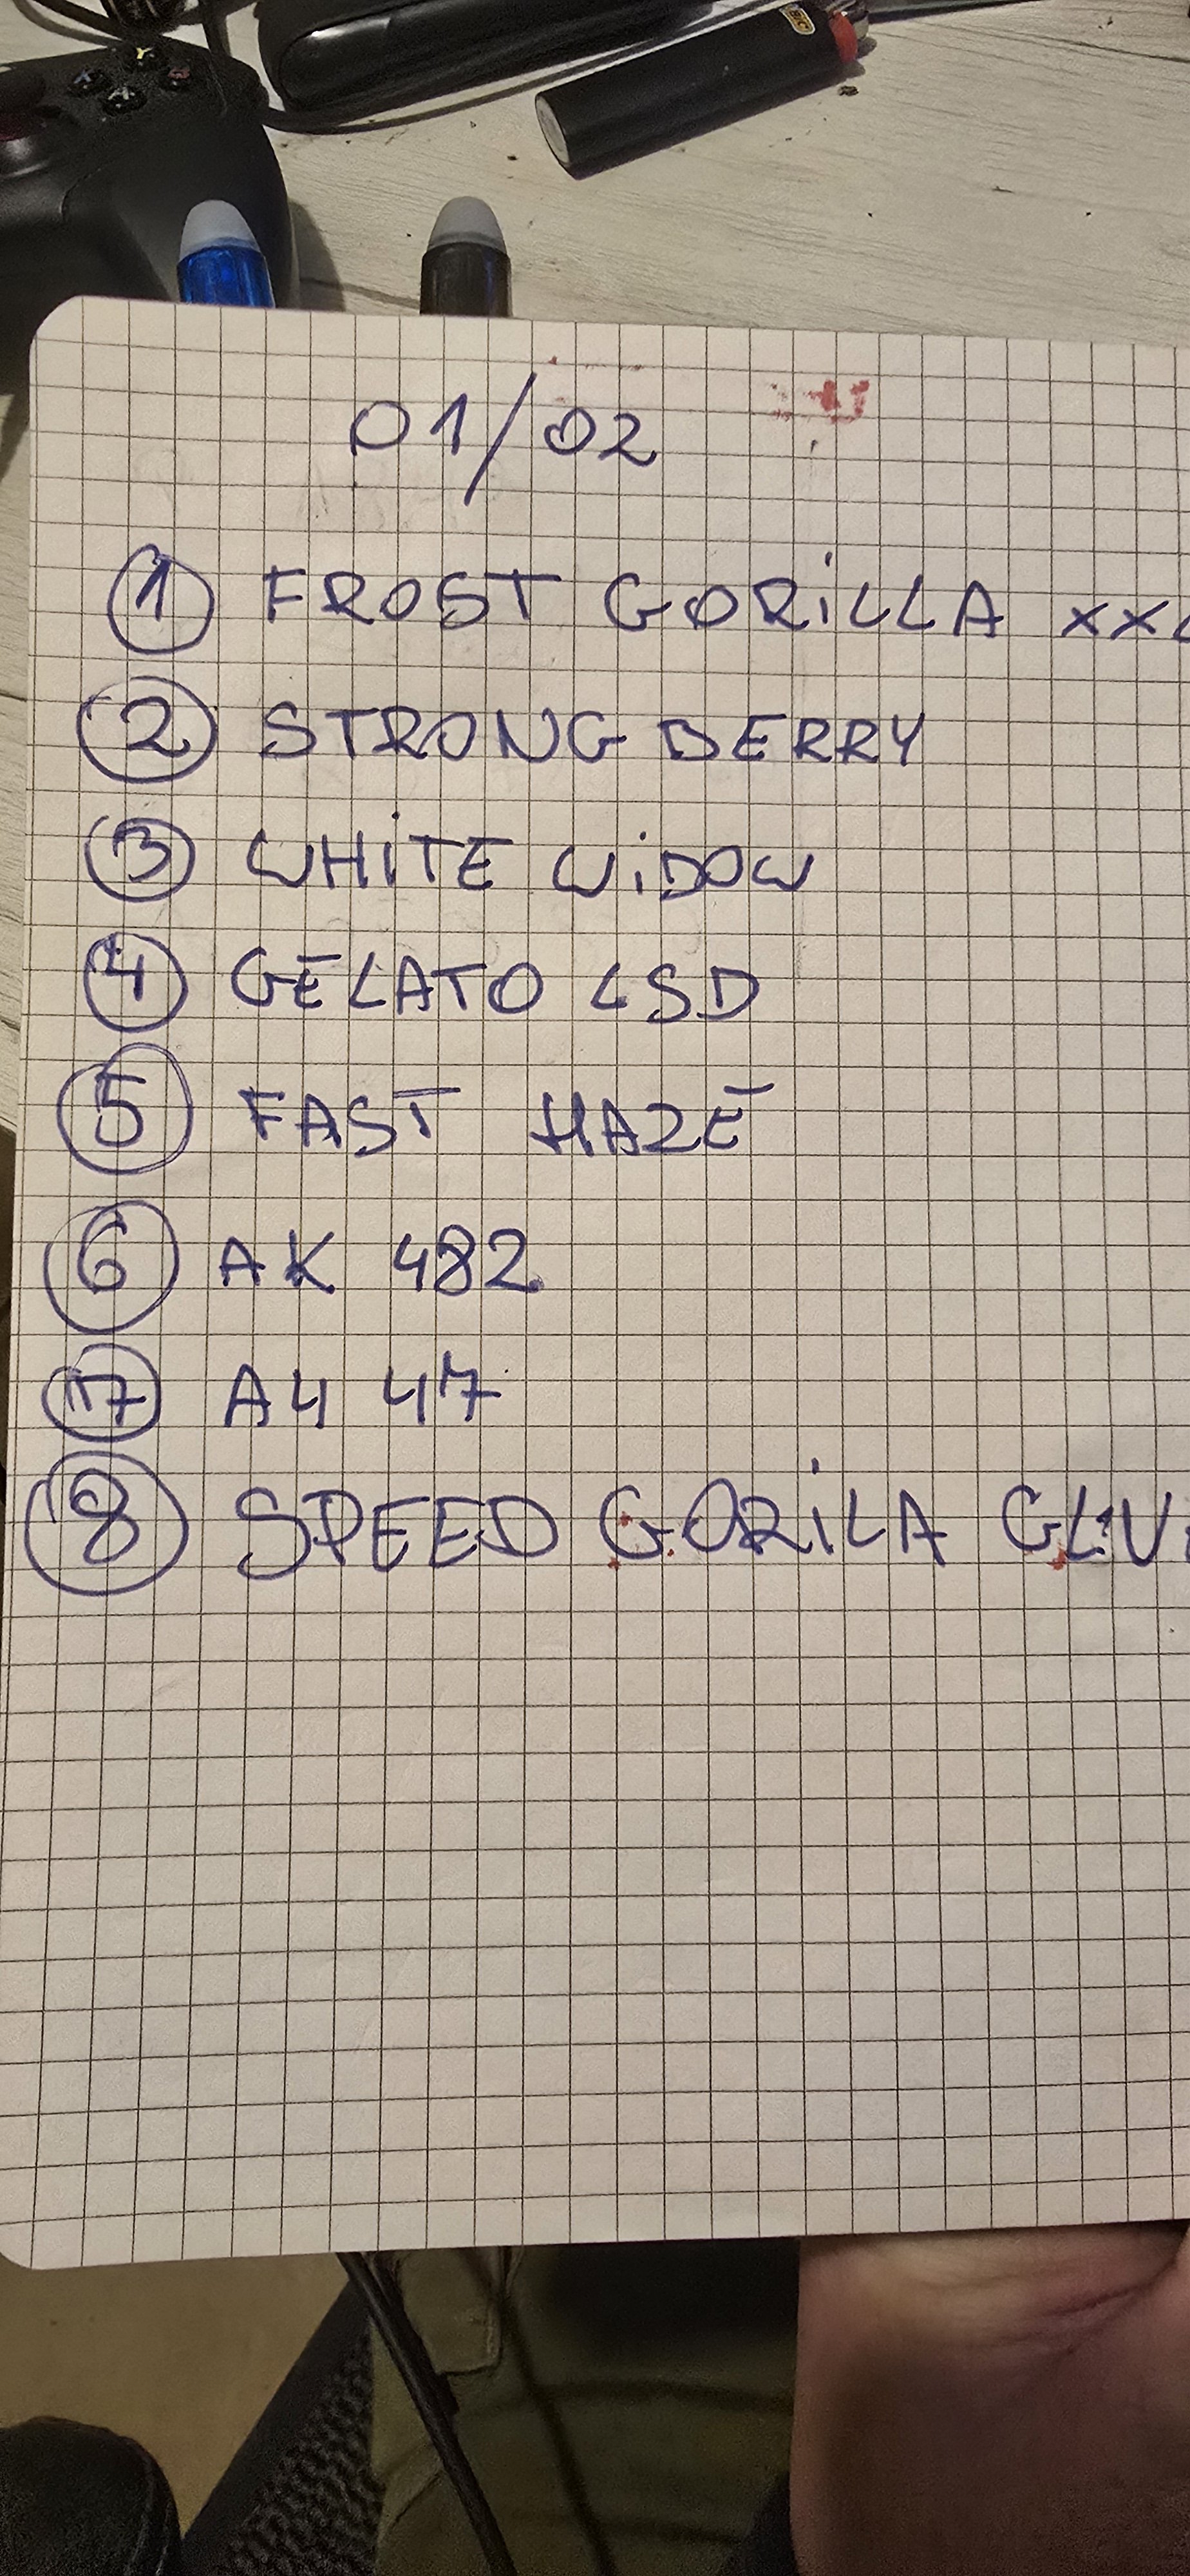 BIC
Y
X
A
01/02
1 FROST GORiLLA XXL
2 STRONG BERRY
3 WHiTE WiDOW
4 GELATO LSD
5 FAST HAZE
6 AK 482
7 A4 47
8 SPEED GORiLA